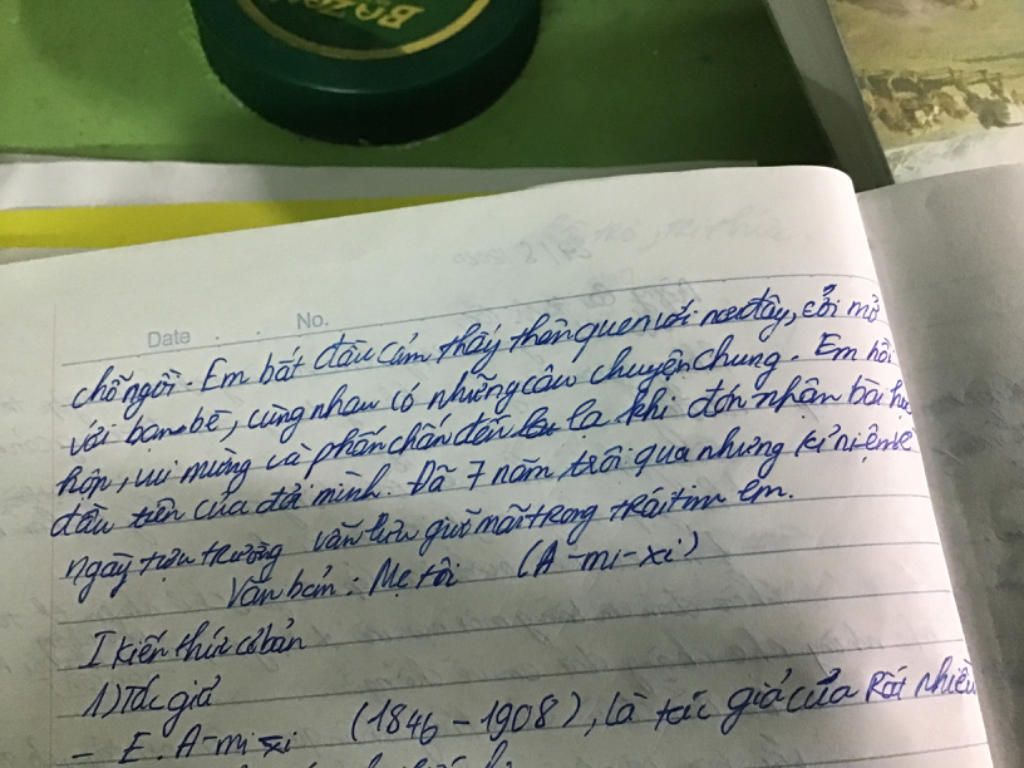 BOZ
Date . . No.
chỗ ngồi. Em bắt đầu cảm thấy thân quen với nơi đây, cởi mở
với bạn bè, cùng nhau có những câu chuyện chung. Em hồi
hộp, vui mừng và phấn chấn đến lạ khi đón nhận bài học
đầu tiên của đời mình. Đã 7 năm trôi qua nhưng kỉ niệm về
ngày tựu trường vẫn lưu giữ mãi trong trái tim em.
Văn bản : Mẹ tôi (A-mi-xi)
I kiến thức cơ bản
1) Tác giả
- E. A-mi-xi (1846 - 1908), là tác giả của rất nhiều